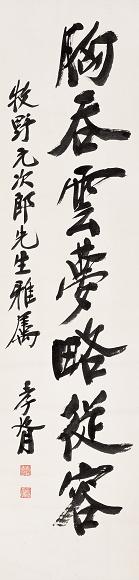 胸吞雲夢略從容
牧野元次郎先生雅属
孝胥